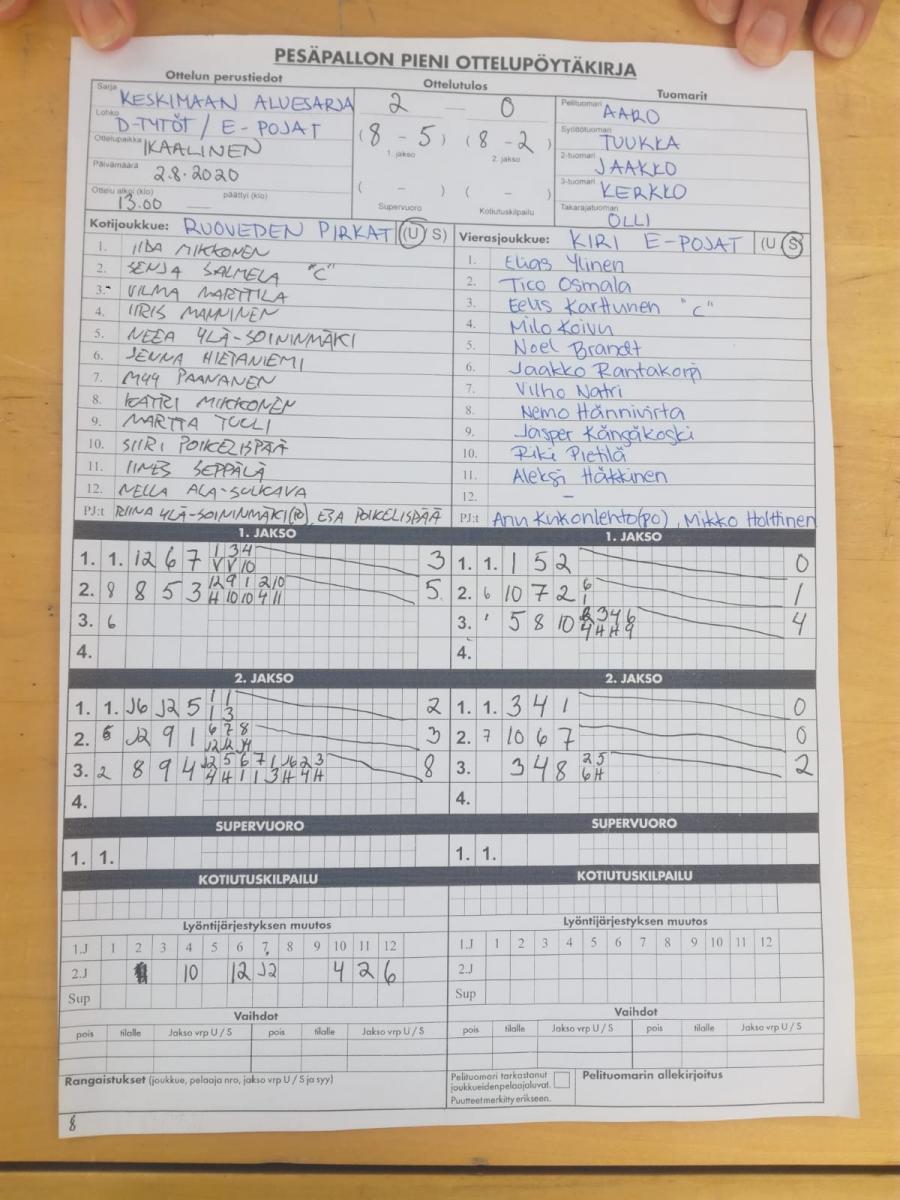 PESÄPALLON PIENI OTTELUPÖYTÄKIRJA
Ottelun perustiedot
Sarja KESKIMAAN ALUESARJA
Lohko D-TYTÖT / E-POJAT
Ottelupaikka IKAALINEN
Päivämäärä 2.8.2020
Ottelu alkoi (klo) päättyi (klo)
13.00
Ottelutulos
2 – 0
(8 – 5) (8 – 2)
1. jakso 2. jakso
( – ) ( – )
Supervuoro Kotiutuskilpailu
Tuomarit
Pelituomari AARO
Syöttötuomari TUUKKA
2-tuomari JAAKKO
3-tuomari KERKKO
Takarajatuomari OLLI
Kotijoukkue: RUOVEDEN PIRKAT (U S)
1. IIDA MIKKONEN
2. SENJA SALMELA "C"
3. VILMA MARTTILA
4. IIRIS MANNINEN
5. NEEA YLÄ-SOININMÄKI
6. JENNA HIETANIEMI
7. MYY PAANANEN
8. KATRI MIKKONEN
9. MARTTA TUULI
10. SIIRI POIKELISPÄÄ
11. IINES SEPPÄLÄ
12. NELLA ALA-SULKAVA
PJ:t RIINA YLÄ-SOININMÄKI(PO), ESA POIKELISPÄÄ
Vierasjoukkue: KIRI E-POJAT (U S)
1. Elias Ylinen
2. Tico Osmala
3. Eelis Karttunen "C"
4. Milo Koivu
5. Noel Brandt
6. Jaakko Rantakorpi
7. Vilho Natri
8. Nemo Hännivirta
9. Jasper Kangaskoski
10. Riki Pietilä
11. Aleksi Häkkinen
12. –
PJ:t Mikko Holttinen
1. JAKSO
1. 1. 12 6 7 1 3 4 3
V V 10
2. 8 8 5 3 12 9 1 2 10 5
H 10 10 4 11
3. 6
4.
1. JAKSO
1. 1. 1 5 2 0
2. 6 10 7 2 6 1
1
3. 5 8 10 3 4 6 4
4 H H 9
4.
2. JAKSO
1. 1. J6 J2 5 1 1 2
1 3
2. J2 9 1 6 7 8 3
J2 J2 J4
3. 2 8 9 4 J2 5 6 7 1 J6 2 3 8
4 H 1 1 3 H 4 H
4.
2. JAKSO
1. 1. 3 4 1 0
2. 7 10 6 7 0
3. 3 4 8 2 5 2
6 H
4.
SUPERVUORO
1. 1.
SUPERVUORO
1. 1.
KOTIUTUSKILPAILU
KOTIUTUSKILPAILU
Lyöntijärjestyksen muutos
1.J 1 2 3 4 5 6 7 8 9 10 11 12
2.J 10 12 J2 4 2 6
Sup
Lyöntijärjestyksen muutos
1.J 1 2 3 4 5 6 7 8 9 10 11 12
2.J
Sup
Vaihdot
pois tilalle Jakso vrp U / S pois tilalle Jakso vrp U / S
Vaihdot
pois tilalle Jakso vrp U / S pois tilalle Jakso vrp U / S
Rangaistukset (joukkue, pelaaja nro, jakso vrp U / S ja syy)
Pelituomari tarkastanut
joukkueidenpelaajaluvat.
Puutteet merkitty erikseen.
Pelituomarin allekirjoitus
8